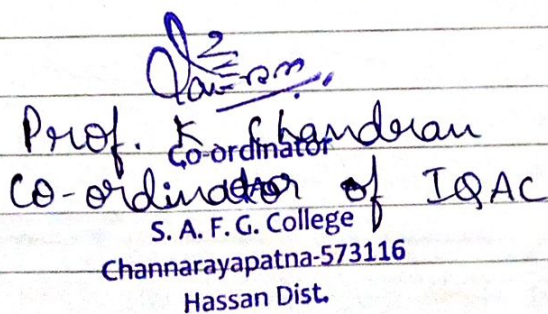 Prof. K Chandran
Co-ordinator
Co-ordinator of IQAC
S. A. F. G. College
Channarayapatna-573116
Hassan Dist.